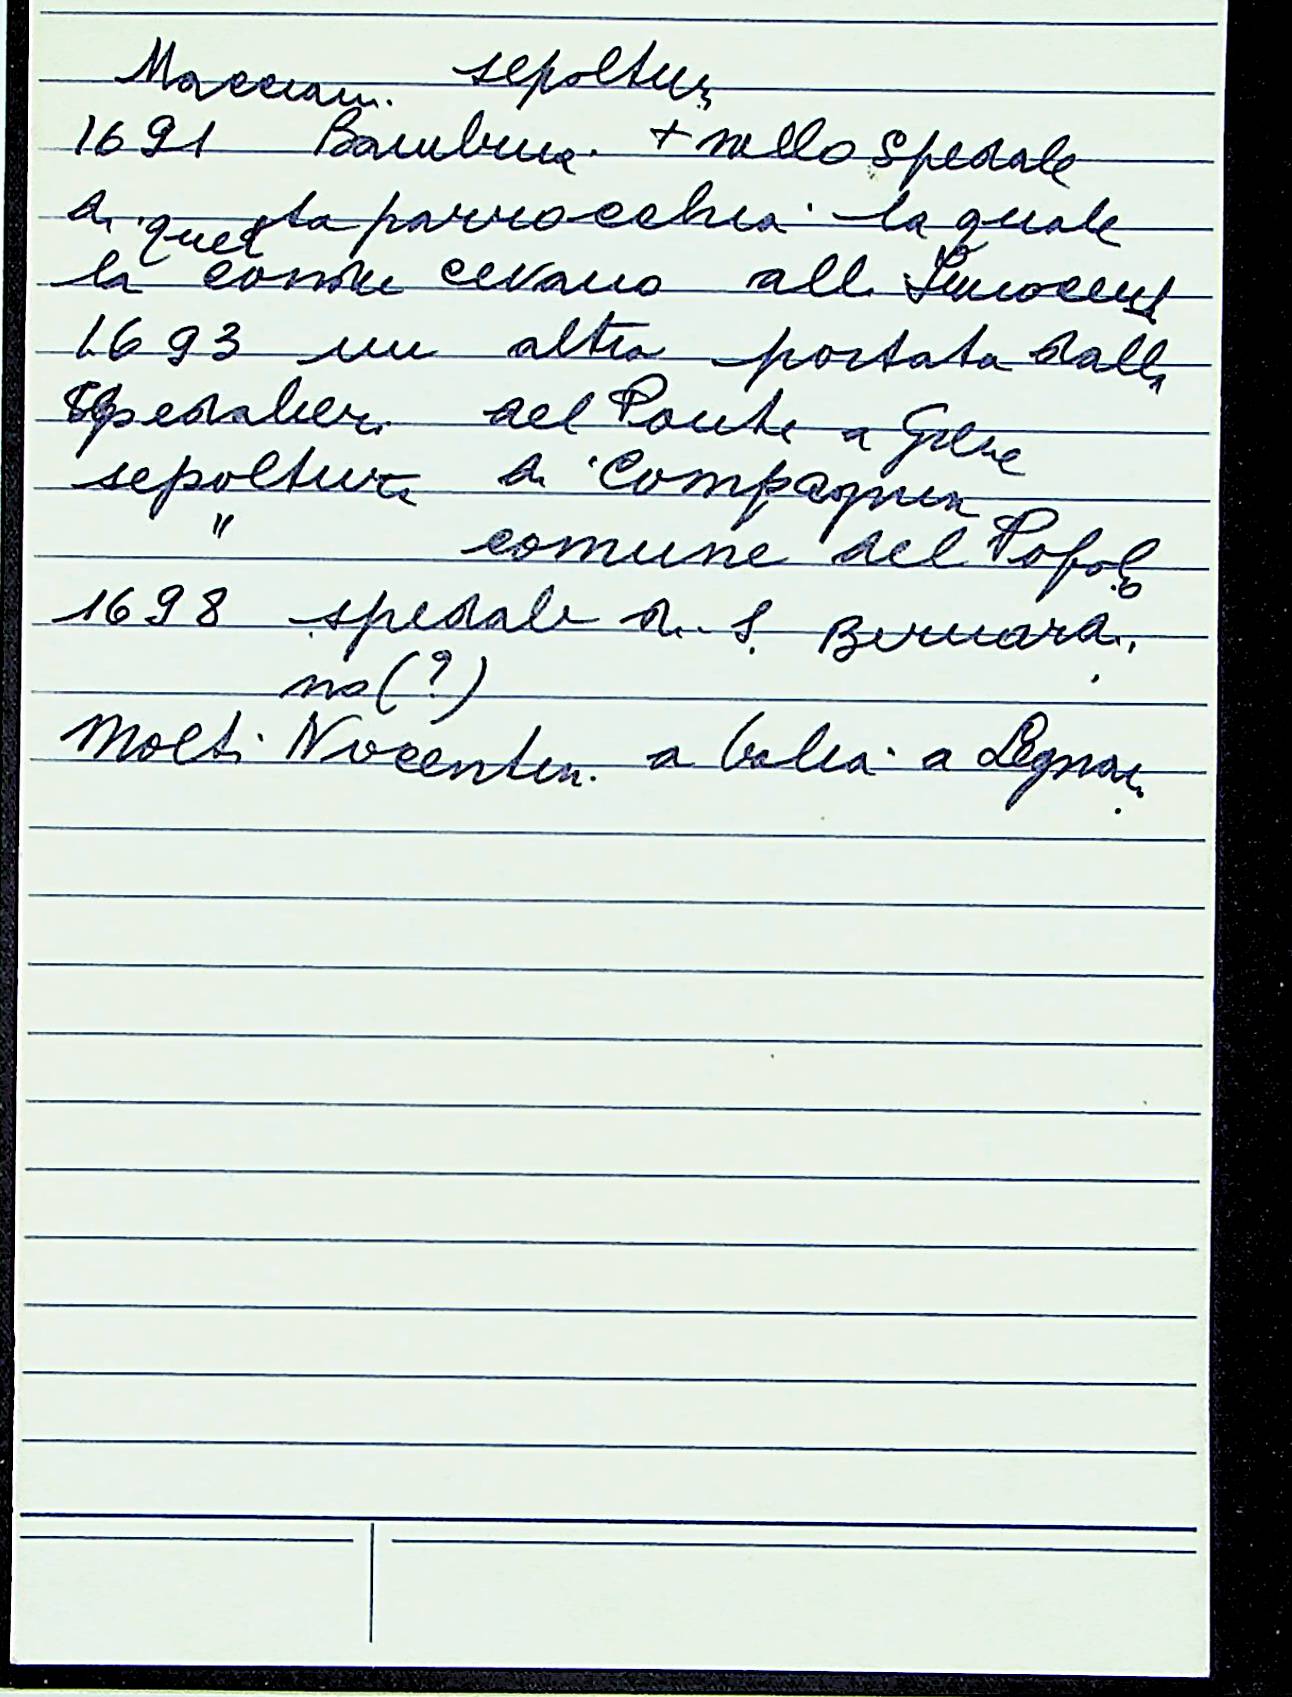 Macciani. sepolture
1691 Bambina. + nello spedale
di questa parrocchia. la quale
la conducevano alli Innocenti
1693 un altra portata dalla
spedalier. del Ponte a Greve
sepoltura di Compagnia
" comune del Popolo
1698 spedale di S. Bernardi
no (?)
Molti Nocentin. a balia a Legnai.